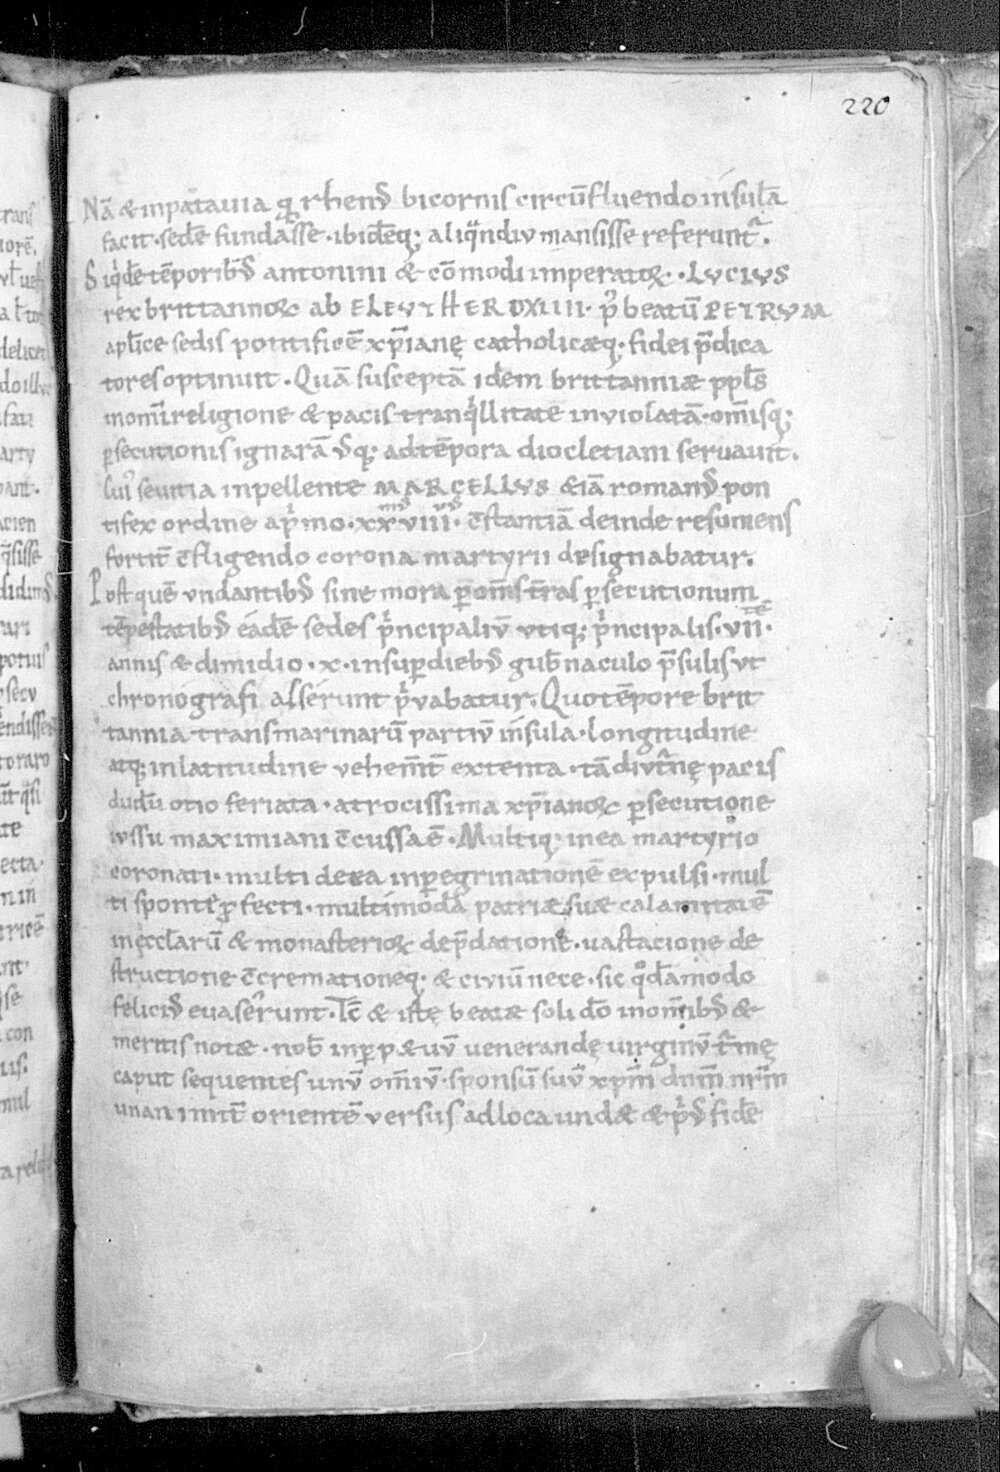 220
Nā & inpatauia q̨ rhenꝰ bicornis circū fluendo insulā
facit · sedē fundasse · ibidēq; aliqͣndiv mansisse referuntᷣ.
Siqͥdē tēporibꝰ antonini & cōmodi imperatoꝝ · LVCIVS
rex brittannoꝝ ab ELEVTHERO XIIII · p̓ beatū PETRVM
aplīce sedis pontificē xp̄ianę catholicæq; fidei p̄dica
tores optinuit . Quā susceptā idem brittanniæ ppl̄s
nom̄ religione & pacis tranqͥllitate inviolatā · om̄isq;
ꝑsecutionis ignarā vꝰq; ad tēpora diocletiani servavit .
Cuiꝰ sevitia inpellente MARCELLVS &iā romanꝰ pon
tifex ordine apͥmo · xxvııı · c̄stantiā deinde resumens
fortit̄ c̄fligendo corona martyrii designabatur .
Post quē vndantibꝰ sine mora ꝑ om̄s t̄ras ꝑsecutionum
tēpestatibꝰ eadē sedes pͥncipaliv̄ vtiq; pͥncipalis · vıı ·
annis & dimidio · x · insuꝑ diebꝰ gub̄naculo p̄sulis vt
chronografi asserunt pͥvabatur . Quo tēpore brit
tannia transmarinarū partiv̄ insula · longitudine
atq; in latitudine vehem̄t̄ extenta · tā divt̄nę pacis
dudū otio feriata · atrocissima xp̄ianoꝝ ꝑsecutione
ivssu maximiani c̄cussa ē . Multiq; in ea martyrio
coronati · multi de ea in ꝑegrinationē expulsi · mul
ti sponte ꝓfecti · multimoda patriæ suæ calamitate
in ęccl̄arū & monasterioꝝ dep̄datione · uastacione de
structione c̄cremationeq; & civiū nece · sic qͦdāmodo
feliciꝰ evaserunt . Ic̄ & istę beatæ soli dō in om̄ibꝰ &
meritis notæ · nob̄ in ꝑp&uv̄ venerandę virginv̄ t̄mę
caput sequentes unv̄ om̄iv̄ · sponsū suv̄ xpm̄ dnm̄ nr̄m
unanimit̄ orientē versus ad loca undæ & pͥꝰ fidē